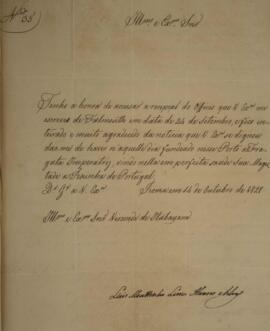 Illmo e Exmo Snr
Tenho a honra de accusar a recepção do Officio que V. Exa me
escreveo de Falmouth em data de 24 de Setembro, e fico in-
teirado e muito agradecido da noticia que V. Exa se dignou
dar-me de haver n'aquelle dia fundeado nesse Porto a Fra-
gata Imperatriz, vindo nella em perfeita saude Sua Mages-
tade a Rainha de Portugal.
Ds Ge a V. Exa em 14 de Outubro de 1828
Illmo e Exmo Snr Visconde de Itabayana
Luis